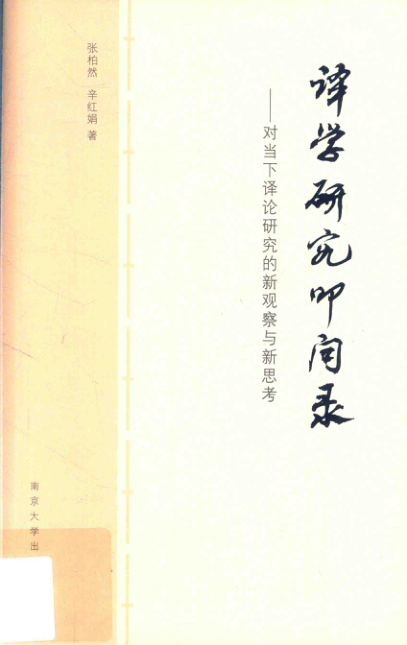 译学研究叩问录
——对当下译论研究的新观察与新思考
张柏然 辛红娟 著
南京大学出